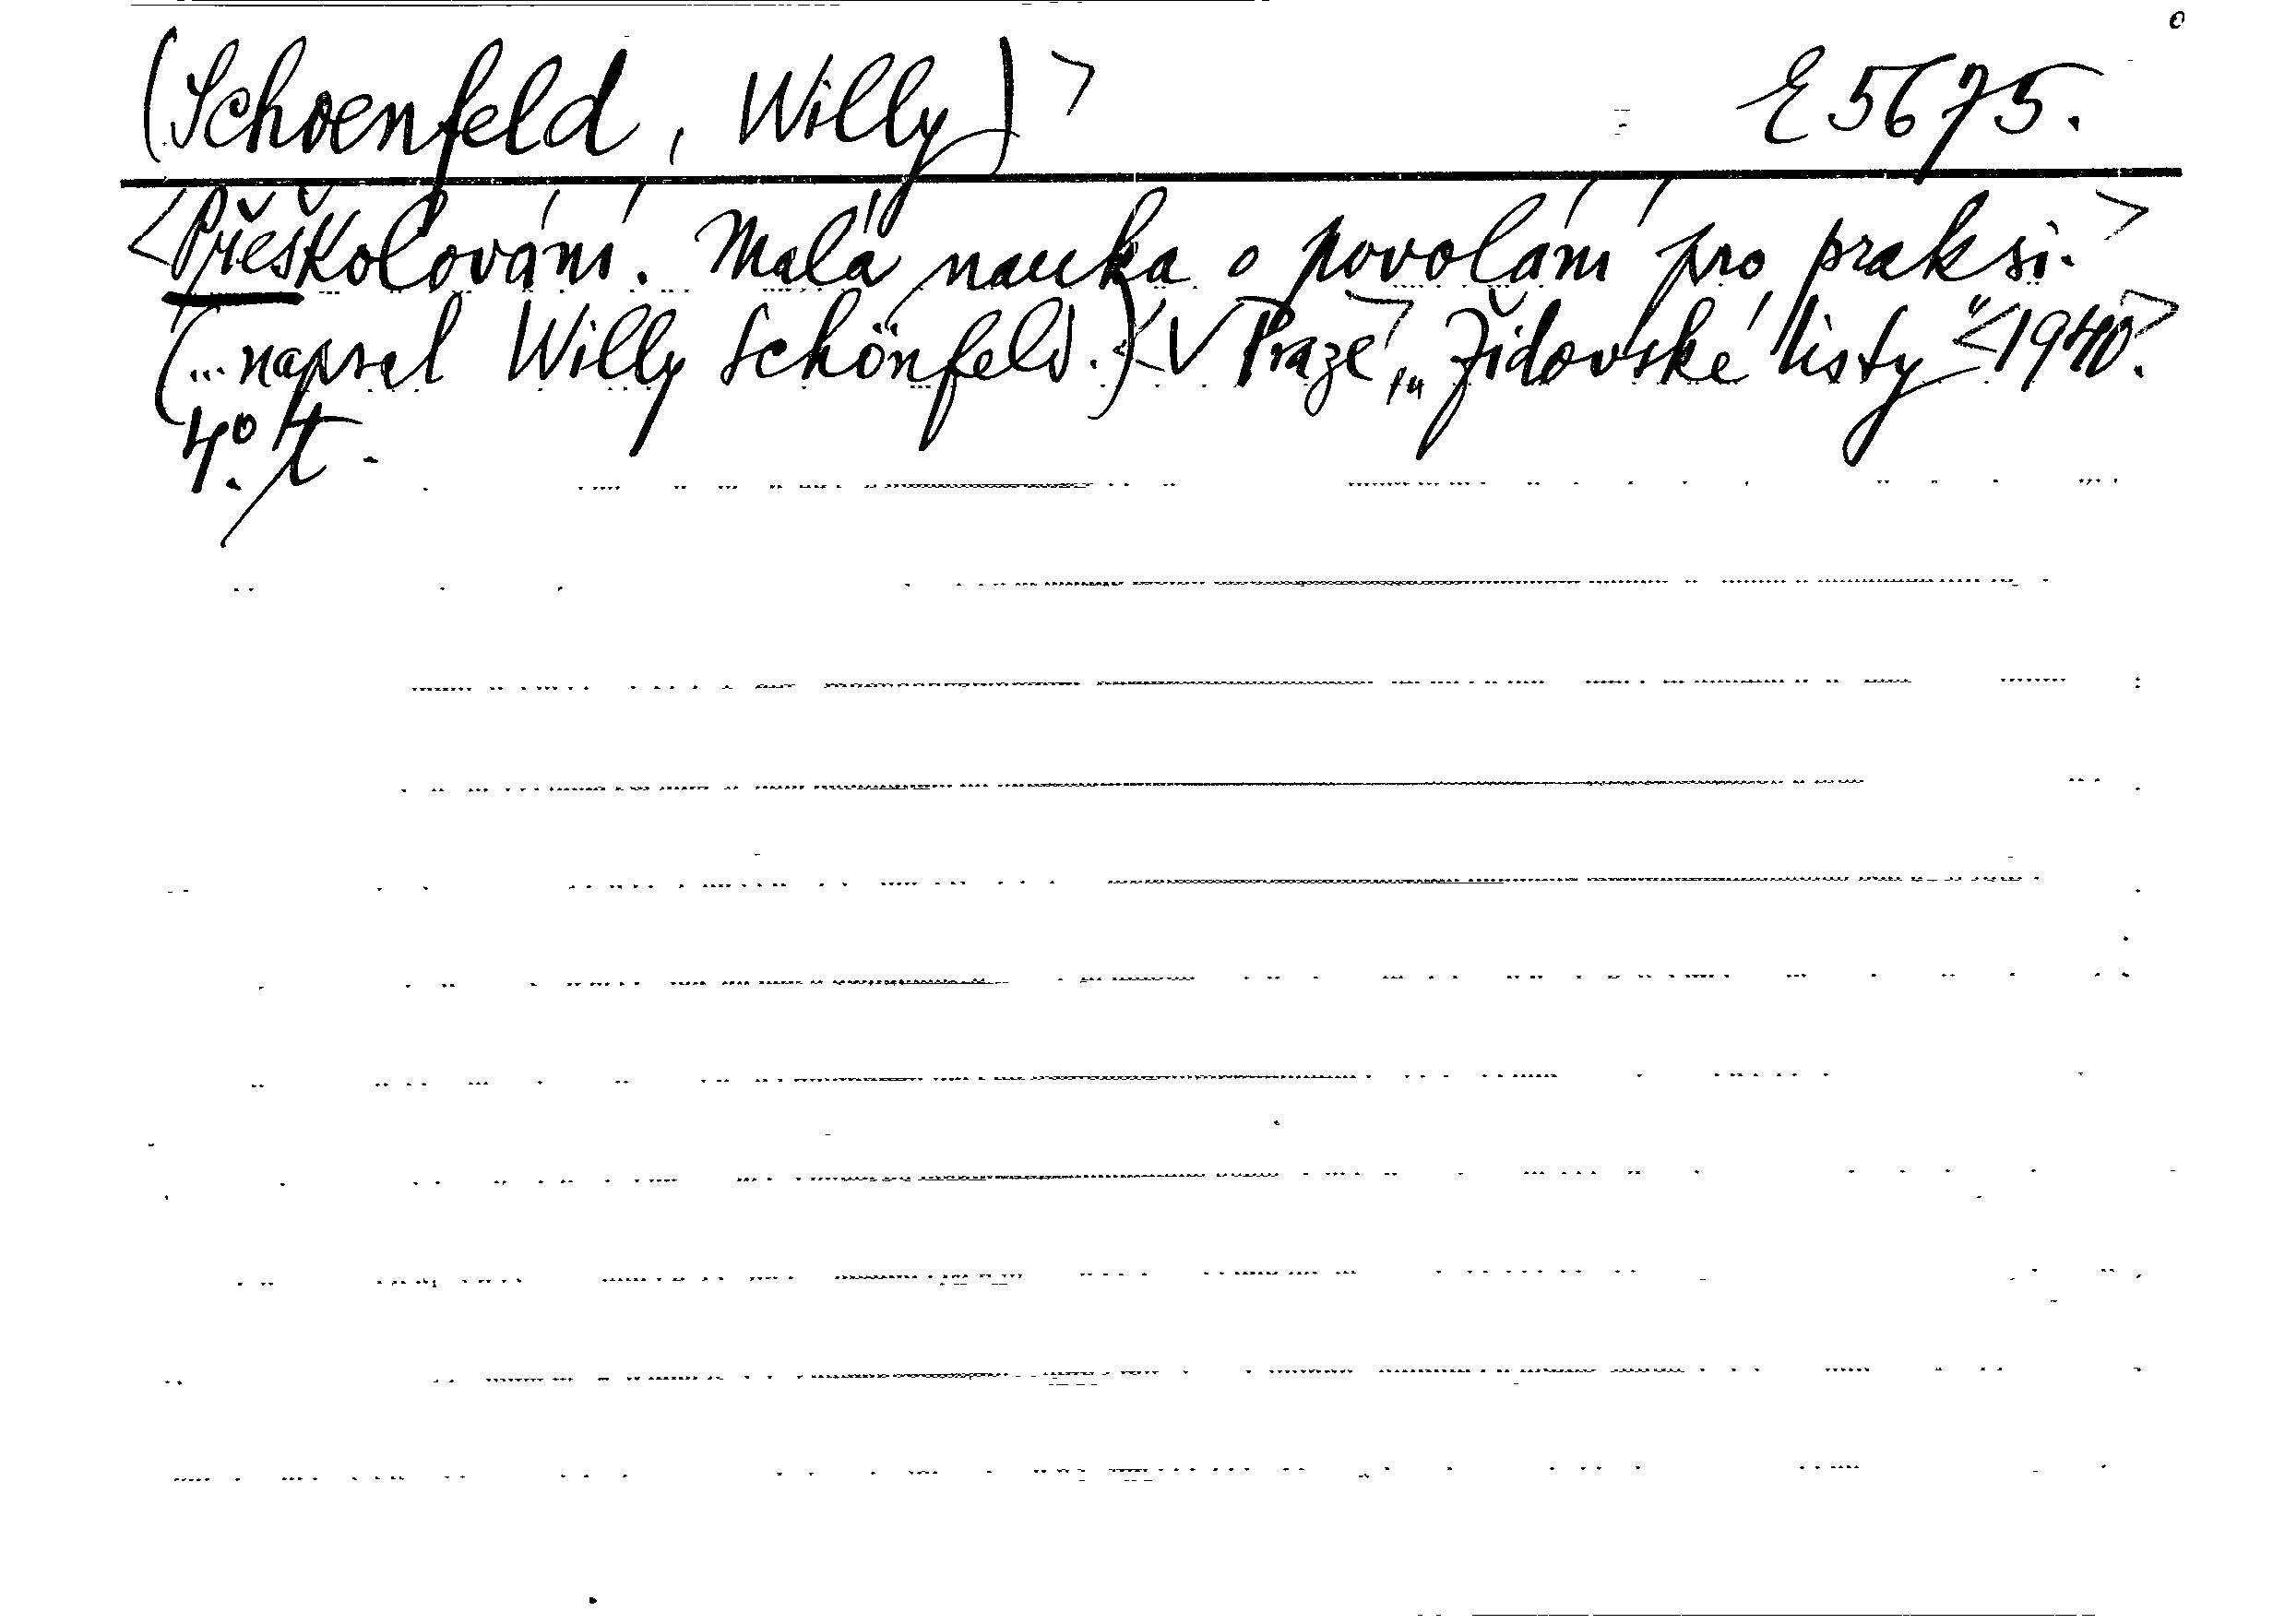 (Schoenfeld, Willy)> E 5675.
<Přeškolování. Malá nauka o povolání pro praksi.>
(...napsal Willy Schönfeld.) <V Praze>, „Židovské listy“ <1940>.
4°. t.